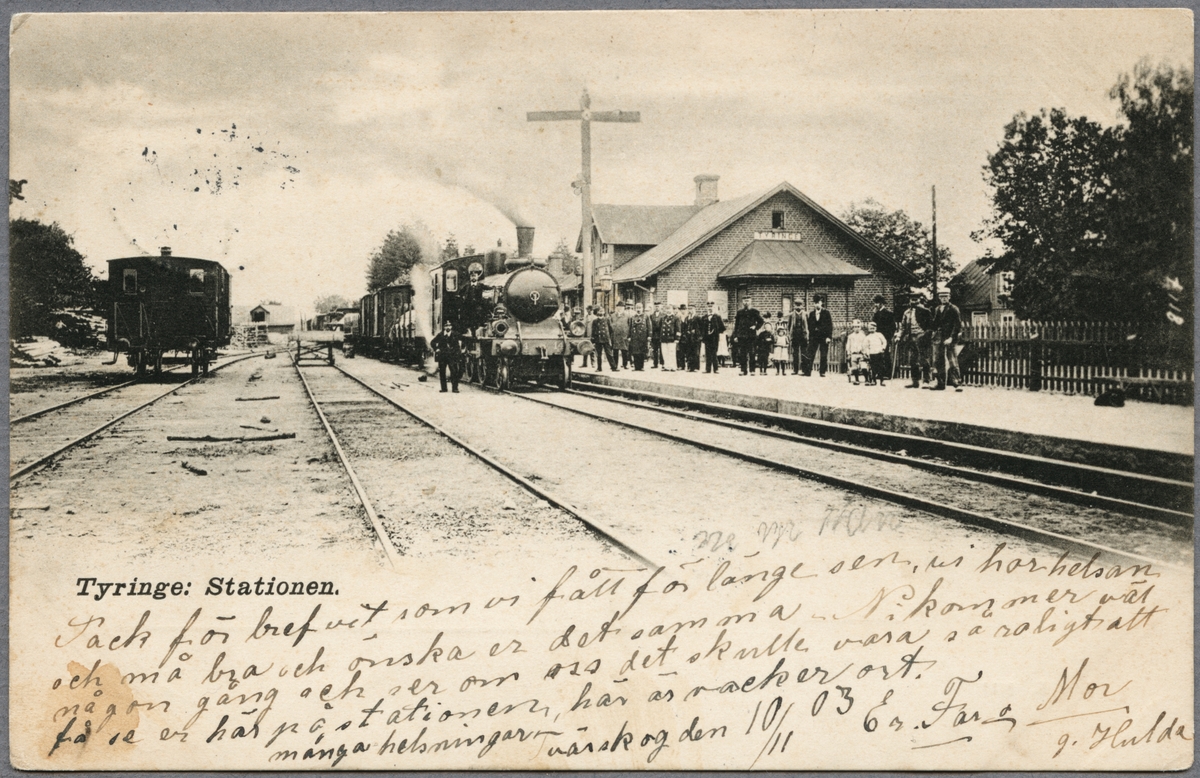 TYRINGE
Tyringe: Stationen.
Tack för brefvet som vi fått för länge sen, vi har helsan
och må bra och önska er det samma. Ni kommer väl
någon gång och ser om oss det skulle vara så roligt att
få se er här på stationen, här är vacker ort.
många helsningar Tvärskog den 10/11 03 Er. Far o Mor
g. Hulda